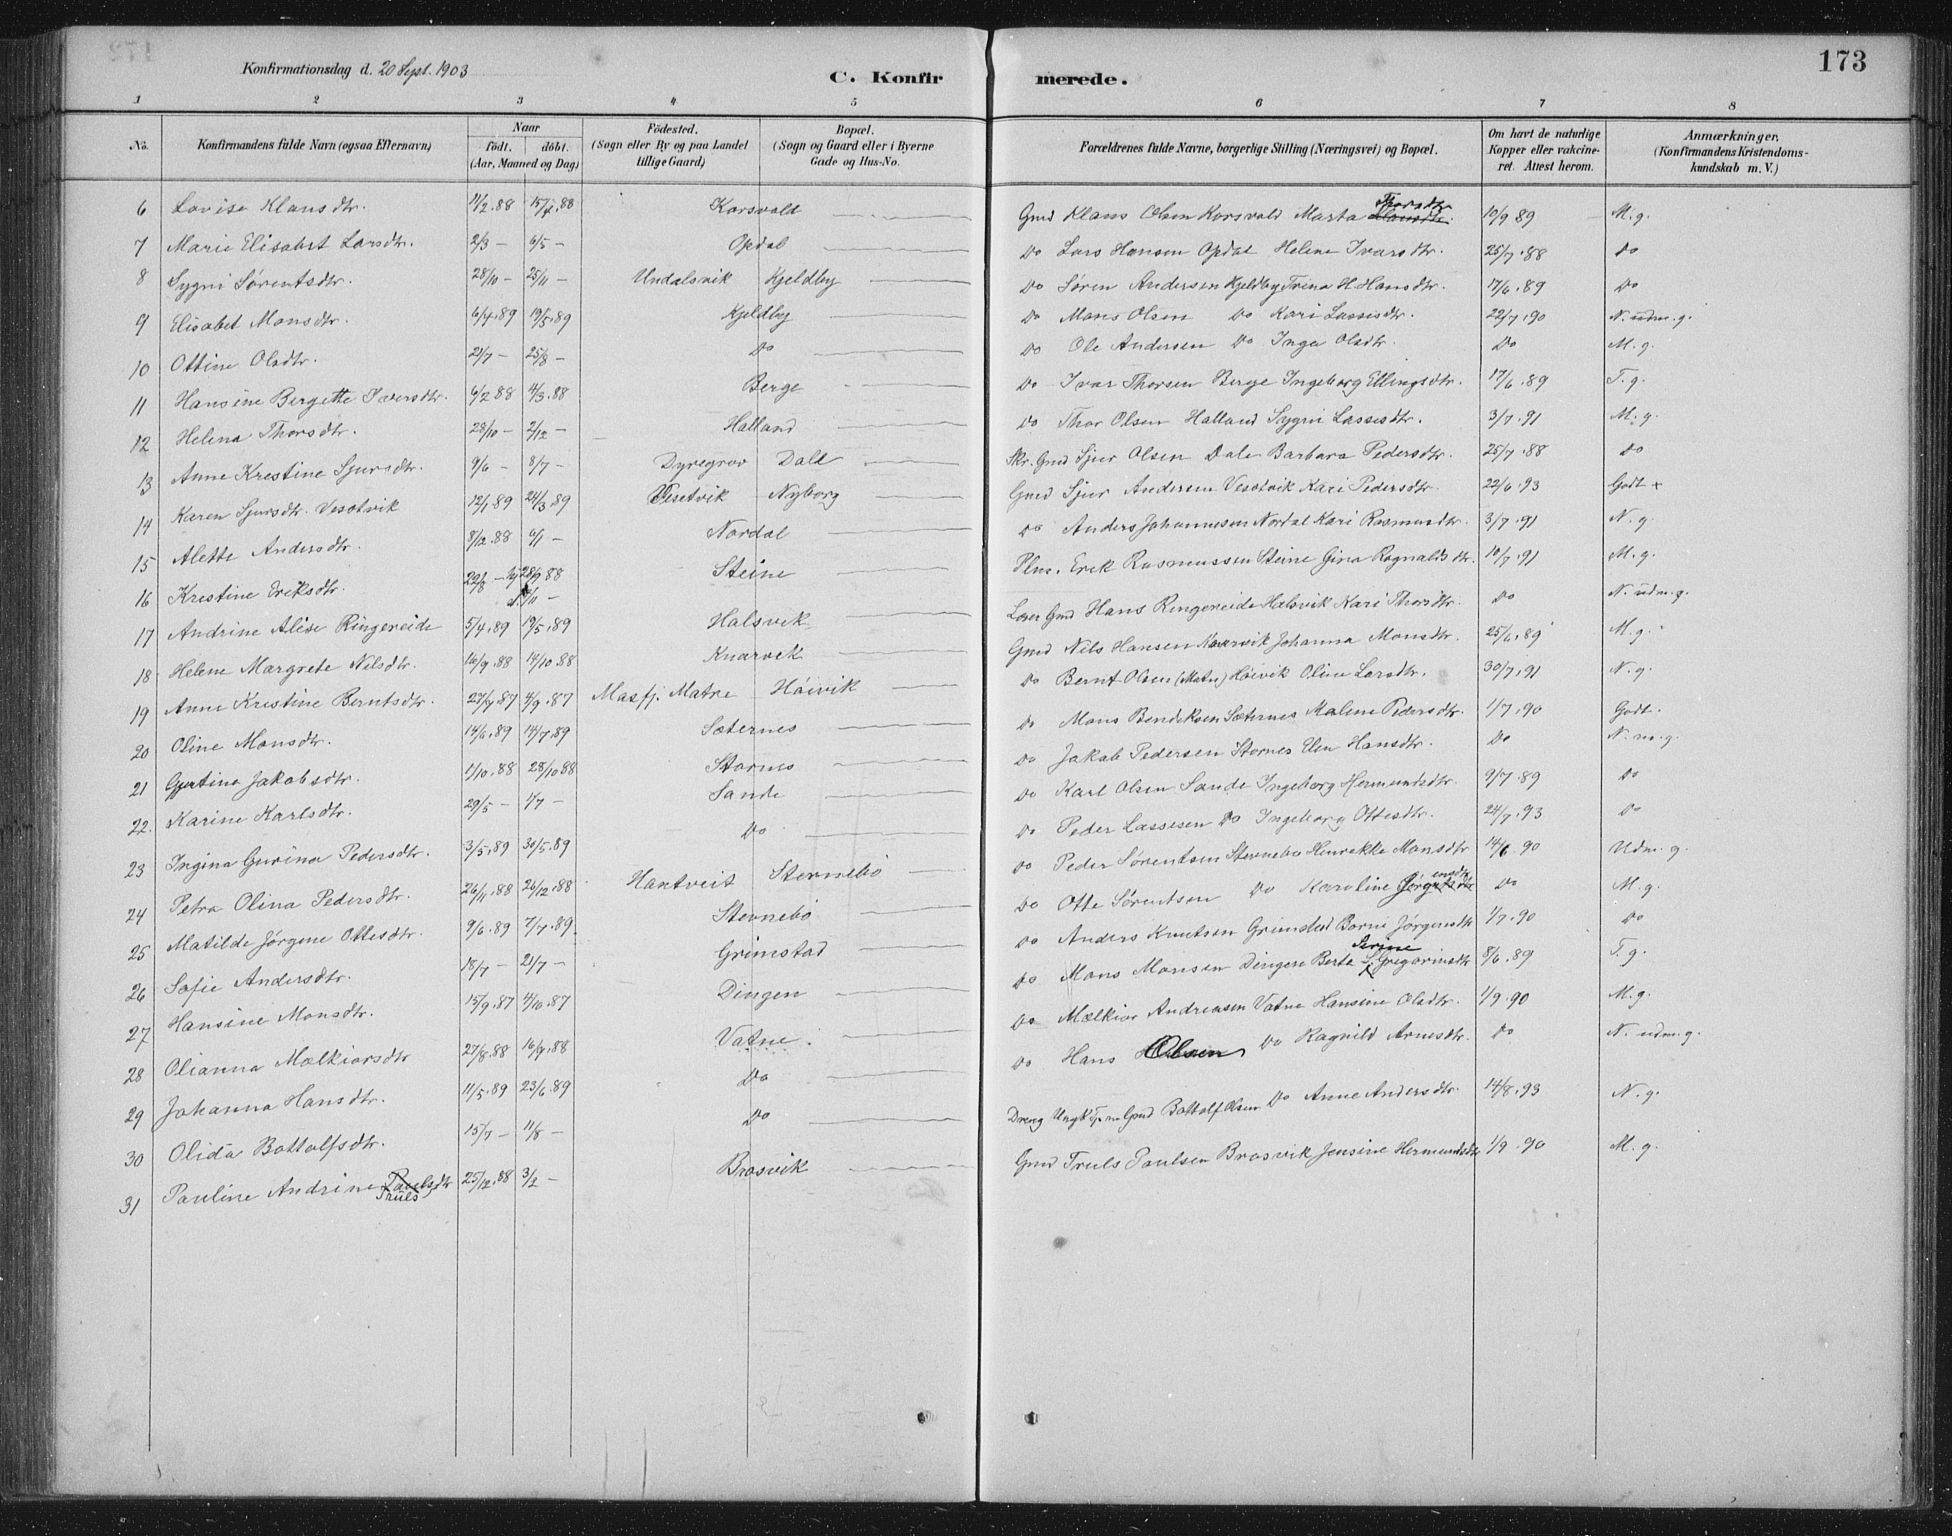 173
Konfirmationsdag d. 20 Sept. 1903
C. Konfirmerede.
1 2 3 4 5 6 7 8
No. Konfirmandens fulde Navn (ogsaa Efternavn) Naar födt. döbt. (Aar, Maaned og Dag) Födested. (Sogn eller By og paa Landet tillige Gaard) Bopæl. (Sogn og Gaard eller i Byerne Gade og Hus-No. Forældrenes fulde Navne, borgerlige Stilling (Næringsvei) og Bopæl. Om havt de naturlige Kopper eller vakcineret. Attest herom. Anmærkninger. (Konfirmandens Kristendomskundskab m. V.)
6 Lovise Klausdtr. 11/2.88 15/4.88 Korsvold Gmd Klaus Olsen Korsvold Marta Thorsdtr. 10/9 89 M. g.
7 Marie Elisabet Larsdtr. 2/3 – 6/5 – Opdal Do Lars Hansen Opdal Helene Ivarsdtr. 25/7.88 Do
8 Sygni Sørentsdtr. 28/10 – 25/11 – Undalsvik Kjeldby Do Søren Andersen Kjeldby Trina H. Hansdtr. 17/6.89 Do
9 Elisabet Monsdtr. 6/4.89 19/5.89 Kjeldby Do Mons Olsen Do Kari Lassesdtr. 22/7.90 N. udm. g.
10 Ottine Olsdtr. 21/7 – 25/8 – Do Do Ole Andersen Do Inga Olsdtr. Do M. g.
11 Hansine Bergette Iversdtr. 6/2 88 4/3.88 Berge Do Ivar Thorsen Berge Ingeborg Ellingsdtr. 17/6.89 T. g.
12 Helena Thorsdtr. 28/10 – 2/12 – Halland Do Thor Olsen Halland Sygni Lassesdtr. 3/7.91 M. g.
13 Anne Krestine Sjursdtr. 9/6 – 8/7 – Dyregrov Dale Skr. Gmd Sjur Olsen Dale Barbara Pedersdtr. 25/7.88 Do
14 Karen Sjursdtr. Vesotvik 12/1.89 24/3.89 Vesetvik Nyborg Gmd Sjur Andersen Vesotvik Kari Pedersdtr. 22/6 93 Godt x
15 Alette Andersdtr. 8/12.88 6/1 – Nordal Do Anders Johannesen Nordal Kari Rasmusdtr. 3/7.91 N. g.
16 Krestine Eriksdtr. 22/8 – 28/9 88 4/11 – Steine Plm. Erik Rasmussen Steine Gina Ragnaldsdtr. 10/7.91 M. g.
17 Andrine Alise Ringereide 5/4.89 19/5.89 Halsvik Løser Gmd Hans Ringereide Halsvik Kari Thorsdtr. Do N. udm. g.
18 Helene Margrete Nilsdtr. 16/9.88 14/10.88 Knarvik Gmd Nils Hansen Knarvik Johanna Monsdtr. 25/6.89 M. g.
19 Anne Krestine Berntsdtr. 27/7.87 4/9.87 Masfj. Matre Höivik Do Bernt Olsen (Matre) Höivik Oline Larsdtr. 30/7.91 N. g.
20 Oline Monsdtr. 14/6.89 14/7.89 Sæternes Do Mons Bendiksen Sæternes Malene Pedersdtr. 1/7.90 Godt.
21 Gjertina Jakobsdtr. 1/10.88 28/10 88 Stornes Do Jakob Pedersen Stornes Elen Hansdtr. Do N. m. g.
22 Karine Karlsdtr. 29/5 – 1/7 – Sande Do Karl Olsen Sande Ingeborg Hermundsdtr. 9/7.89 Do
23 Ingina Gurina Pedersdtr. 3/5.89 30/5.89 Do Do Peder Lassesen Do Ingeborg Ottesdtr. 24/7.93 Do
24 Petra Olina Pedersdtr. 26/11.88 26/12.88 Hantveit Sternebö Do Peder Sörentsen Sternebö Henrekke Monsdtr 14/6.90 Udm. g.
25 Matilde Jörgene Ottesdtr. 9/6.89 7/7.89. Sternebö Do Otte Sörentsen Do Karoline Do M. g.
26 Sofie Andersdtr. 18/7 – 21/7 – Grimstad Do Anders Knutsen Grimstad Borni Jörgensdtr 1/7.90 Do
27 Hansine Monsdtr. 15/9.87 4/10.87 Dingen Do Mons Monsen Dingen Berte Serine Gregoriusdtr 8/6.89 T. g.
28 Olianna Mælkiorsdtr 27/8.88 16/9.88 Vatne. Do Mælkior Andreasen Vatne Hansine Olsdtr. 1/9.90 M. g.
29 Johanna Hansdtr. 11/5.89 23/6.89 Do Do Hans Olsen Do Ragnild Arnesdtr. Do N. udm. g.
30 Olida Bottolfsdtr. 15/7 – 11/8 – Do Dreng Gmd Bottolf Olsen Do Anne Andersdtr. 14/8.93 N. g.
31 Pauline Andrine Paulsdtr Truls 25/12.88 3/2 – Brosvik Gmd Truls Paulsen Brosvik Jensine Hermundsdtr 1/9.90 M. g.